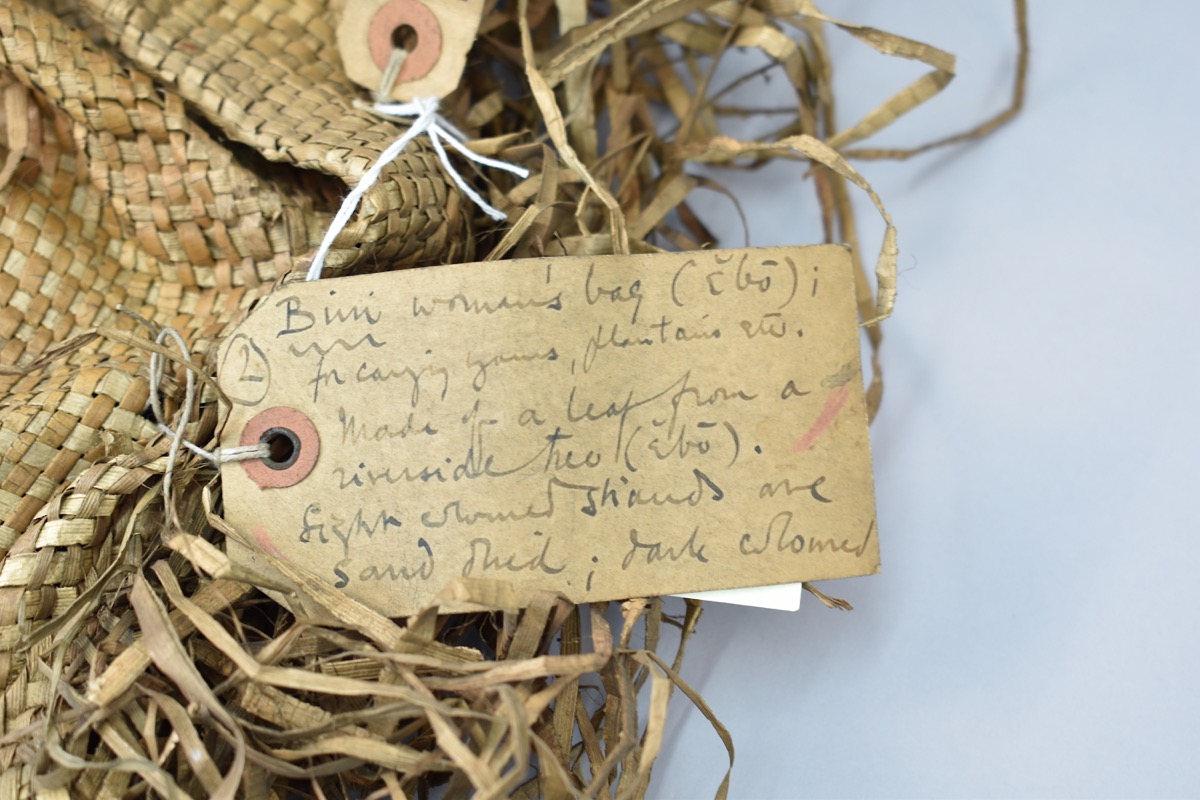 Bini woman's bag (ĕbō);
② for carrying yams, plantains etc.
Made of a leaf from a
riverside tree (ĕbō).
Light coloured strands are
sand dried; dark coloured